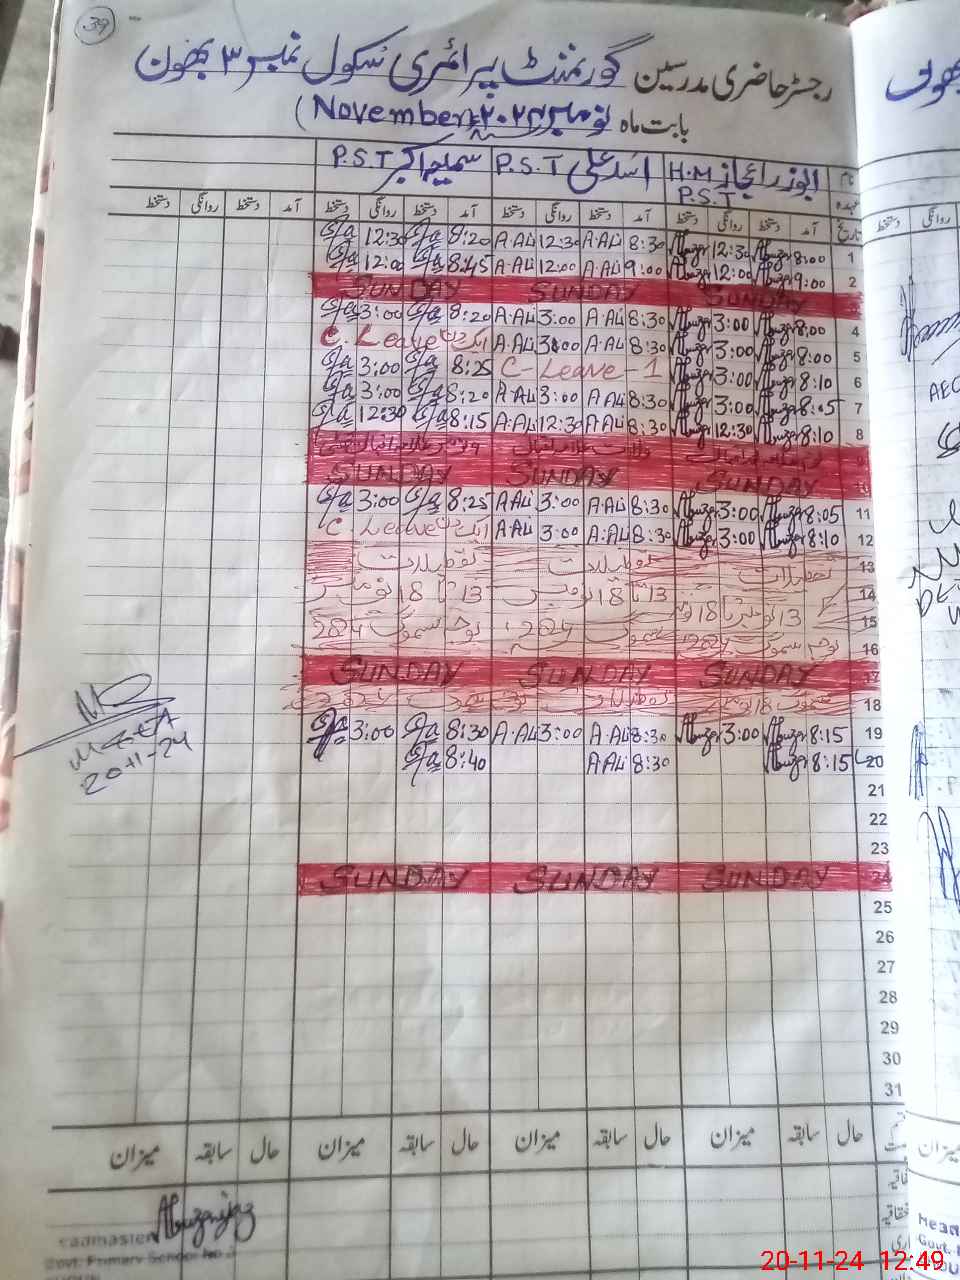 39
رجسٹر حاضری مدرسین گورنمنٹ پرائمری سکول نمبر ۳ بھون
بابت ماہ نومبر ۲۰۲۴ (November)
ابوزر اعجاز H.M P.S.T اسد علی P.S.T سمیعہ اکبر P.S.T
تاریخ آمد دستخط روانگی دستخط آمد دستخط روانگی دستخط آمد دستخط روانگی دستخط آمد دستخط روانگی دستخط
1 8:00 Abuzar 12:30 Abuzar 8:30 A.Ali 12:30 A.Ali 8:20 12:30
2 9:00 Abuzar 12:00 Abuzar 9:00 A.Ali 12:00 A.Ali 8:45 12:00
SUNDAY SUNDAY SUNDAY
4 8:00 Abuzar 3:00 Abuzar 8:30 A.Ali 3:00 A.Ali 8:20 3:00
5 8:00 Abuzar 3:00 Abuzar 8:30 A.Ali 3:00 A.Ali C. Leave ایک دن
6 8:10 Abuzar 3:00 Abuzar C-Leave-1 8:25 3:00
7 8:05 Abuzar 3:00 Abuzar 8:30 A.Ali 3:00 A.Ali 8:20 3:00
8 8:10 Abuzar 12:30 Abuzar 8:30 A.Ali 12:30 A.Ali 8:15 12:30
9 ولادت علامہ اقبال
10 SUNDAY SUNDAY SUNDAY
11 8:05 Abuzar 3:00 Abuzar 8:30 A.Ali 3:00 A.Ali 8:25 3:00
12 8:10 Abuzar 3:00 Abuzar 8:30 A.Ali 3:00 A.Ali C. Leave ایک دن
13 تعطیلات تعطیلات تعطیلات
14 13 نومبر تا 18 نومبر 13 تا 18 نومبر 13 تا 18 نومبر
15 بوجہ سموگ 2024 سموگ 2024 بوجہ سموگ 2024
16
17 SUNDAY SUNDAY SUNDAY
18 سموگ 18 نومبر تعطیلات
19 8:15 Abuzar 3:00 Abuzar 8:30 A.Ali 3:00 A.Ali 8:30 3:00
20 8:15 Abuzar 8:30 A.Ali 8:40
20-11-24
21
22
23
24 SUNDAY SUNDAY SUNDAY
25
26
27
28
29
30
31
حال سابقہ میزان حال سابقہ میزان حال سابقہ میزان حال سابقہ میزان
Abuzarijaz
eadmaster
Govt. Primary School No 3
20-11-24 12:49